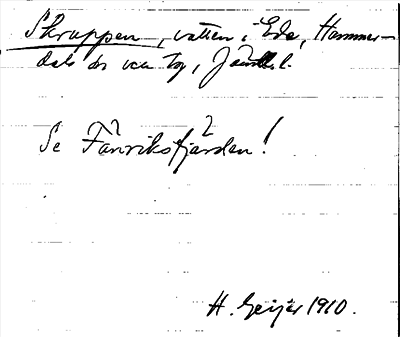 Skruppen, vatten i Ede, Hammer-
dals sn och tg, Jämtl. l.
Se Fänriksfjärden!
H. Geijer 1910.